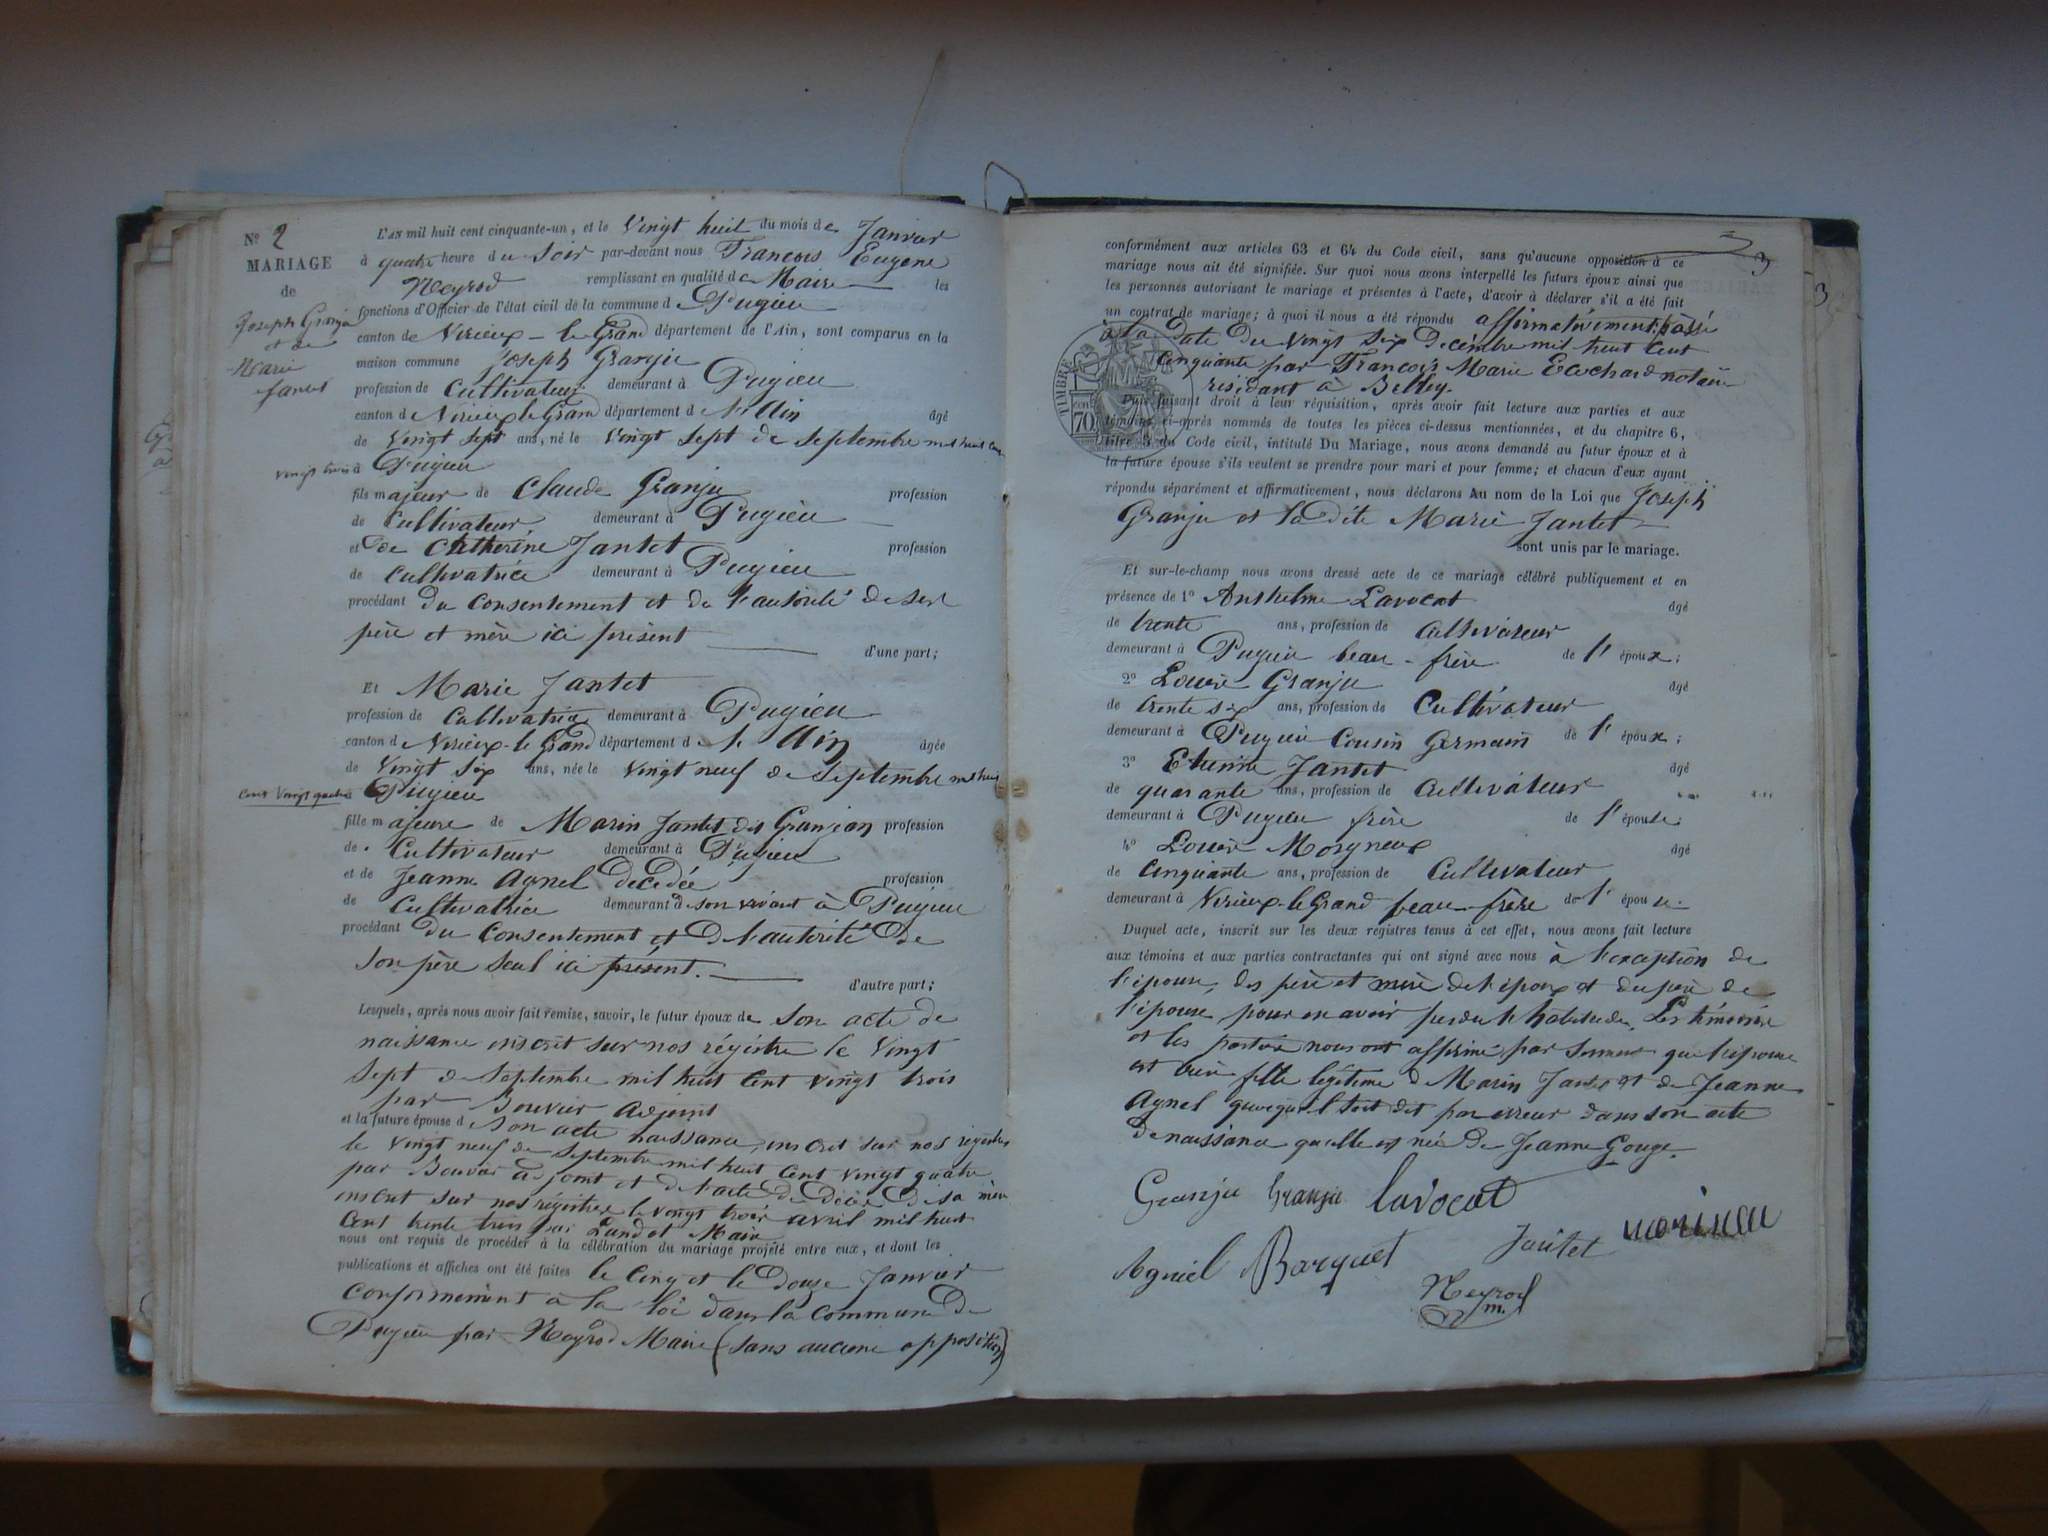 N° 2
MARIAGE
de
Joseph Granju
et de
Marie
Jantet
L'AN mil huit cent cinquante-un, et le Vingt huit du mois de Janvier
à quatre heure du Soir par-devant nous Francois Eugene
Neyrod remplissant en qualité de Maire les
fonctions d'Officier de l'état civil de la commune d Pugieu
canton de Virieux-le Grand département de l'Ain, sont comparus en la
maison commune Joseph Granju
profession de Cultivateur demeurant à Pugieu
canton de Virieux le Grand département d l'Ain âgé
de Vingt Sept ans, né le Vingt Sept de Septembre mil huit Cent
vingt trois à Pugieu
fils majeur de Claude Granju profession
de Cultivateur demeurant à Pugieu
et de Catherine Jantet profession
de Cultivatrice demeurant à Pugieu
procédant du Consentement et de l'autorité de ses
père et mère ici présent
d'une part;
Et Marie Jantet
profession de Cultivatrice demeurant à Pugieu
canton de Virieux-le Grand département d l'Ain âgée
de Vingt Six ans, née le Vingt neuf de Septembre mil huit
Cent Vingt quatre à Pugieu
fille majeure de Marin Jantet dit Granjan profession
de Cultivateur demeurant à Pugieu
et de Jeanne Agnel Décédée profession
de Cultivatrice demeurant de son vivant à Pugieu
procédant du Consentement et D l'autorité De
Son père Seul ici présent.
d'autre part;
Lesquels, après nous avoir fait remise, savoir, le futur époux de Son acte de
naissance inscrit sur nos régistre le Vingt
Sept de Septembre mil huit Cent vingt trois
par Bouvier Adjoint
et la future épouse d Son acte naissance, inscrit sur nos registres
le vingt neuf de Septembre mil huit Cent vingt quatre
par Bouvier adjoint et de l'acte De Décès De sa mère
inscrit sur nos régistres le vingt trois avril mil huit
Cent trente trois par Landot Maire
nous ont requis de procéder à la célébration du mariage projeté entre eux, et dont les
publications et affiches ont été faites le Cinq et le Douze Janvier
Conformément à la loi dans la Commune De
Pugieu par Neyrod Maire (sans aucune opposition)
3
3
conformément aux articles 63 et 64 du Code civil, sans qu'aucune opposition à ce
mariage nous ait été signifiée. Sur quoi nous avons interpellé les futurs époux ainsi que
les personnes autorisant le mariage et présentes à l'acte, d'avoir à déclarer s'il a été fait
un contrat de mariage; à quoi il nous a été répondu affirmativement: passé
à la Date du Vingt Six Décembre mil huit Cent
Cinquante par Francois Marie notaire
résidant à Belley.
TIMBRE
70
Puis, faisant droit à leur réquisition, après avoir fait lecture aux parties et aux
témoins ci-après nommés de toutes les pièces ci-dessus mentionnées, et du chapitre 6,
titre 5 du Code civil, intitulé Du Mariage, nous avons demandé au futur époux et à
la future épouse s'ils veulent se prendre pour mari et pour femme; et chacun d'eux ayant
répondu séparément et affirmativement, nous déclarons Au nom de la Loi que Joseph
Granju et la Dite Marie Jantet
sont unis par le mariage.
Et sur-le-champ nous avons dressé acte de ce mariage célébré publiquement et en
présence de 1° Anthelme Lavocat âgé
de trente ans, profession de Cultivateur
demeurant à Pugieu beau-frère de l'époux;
2° Louis Granju âgé
de trente six ans, profession de Cultivateur
demeurant à Pugieu Cousin Germain de l'époux;
3° Etienne Jantet âgé
de quarante ans, profession de Cultivateur
demeurant à Pugieu frère de l'épouse;
4° Louis Morgneux âgé
de Cinquante ans, profession de Cultivateur
demeurant à Virieux-le Grand beau-frère de l'épouse.
Duquel acte, inscrit sur les deux registres tenus à cet effet, nous avons fait lecture
aux témoins et aux parties contractantes qui ont signé avec nous à l'exception de
l'épouse, des père et mère de l'époux et du père de
l'épouse pour en avoir perdu l'habitude. Les témoins
et les parties nous ont affirmé par serment que l'épouse
est bien fille légitime d Marin Jantet et de Jeanne
Agnel quoequ'il soit dit par erreur dans son acte
De naissance qu'elle est née De Jeanne Gouge.
Granju Granju Lavocat
Jantet
Agniel Barquet
Neyrod
m.